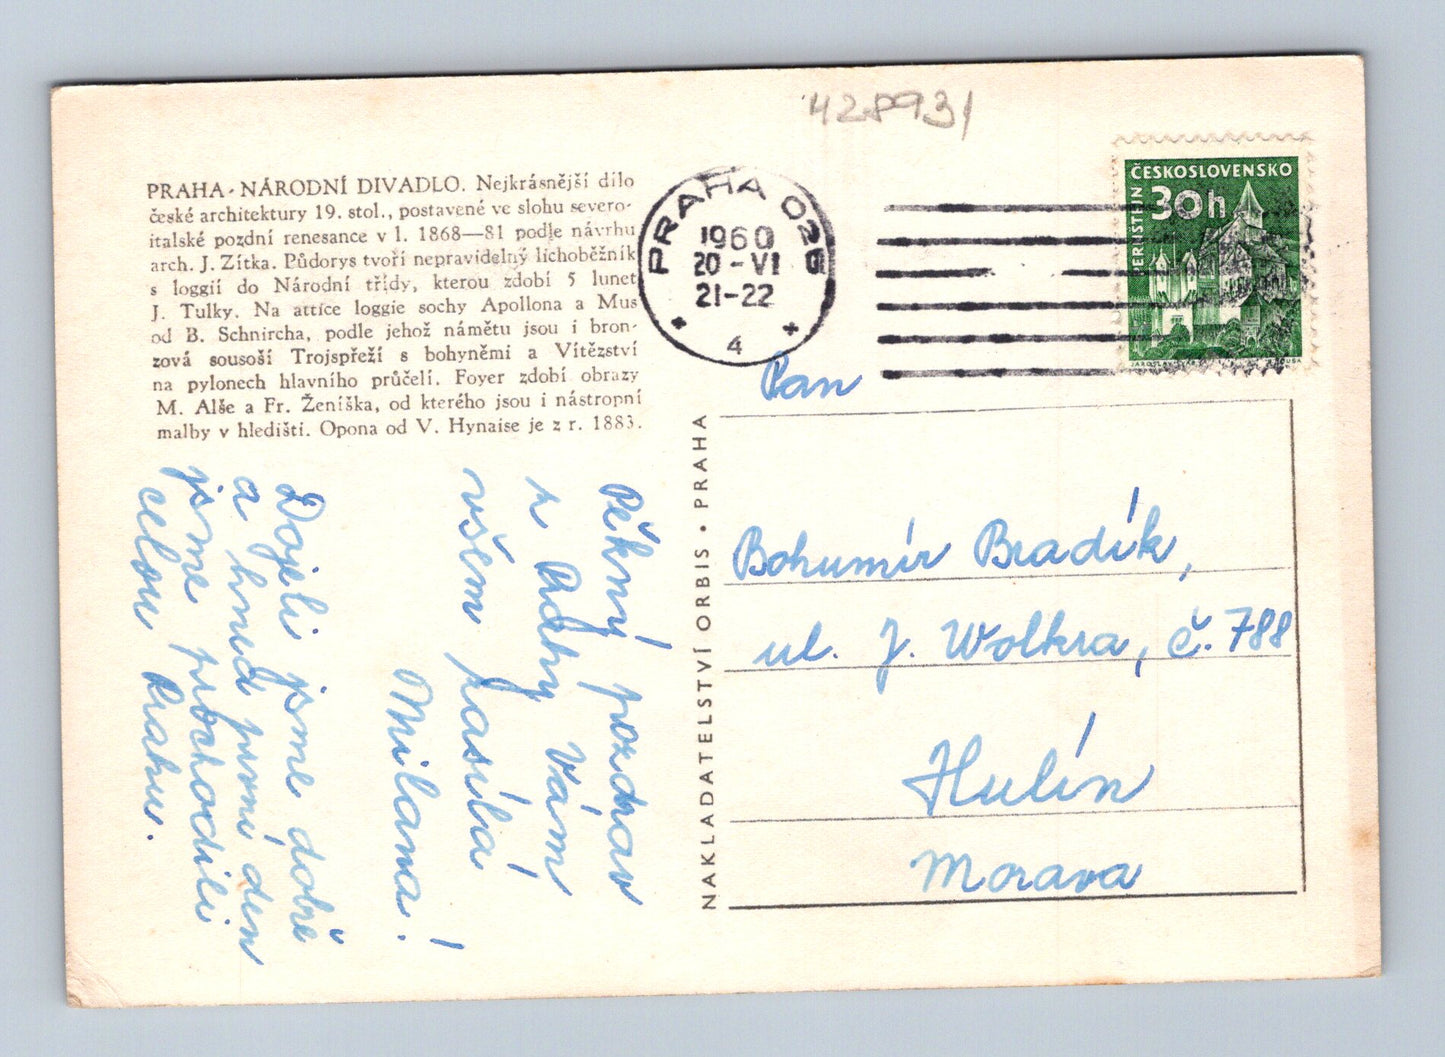 428931
PRAHA-NÁRODNÍ DIVADLO. Nejkrásnější dílo
české architektury 19. stol., postavené ve slohu severo-
italské pozdní renesance v l. 1868—81 podle návrhu
arch. J. Zítka. Půdorys tvoří nepravidelný lichoběžník
s loggií do Národní třídy, kterou zdobí 5 lunet
J. Tulky. Na attice loggie sochy Apollona a Mus
od B. Schnircha, podle jehož námětu jsou i bron-
zová sousoší Trojspřeží s bohyněmi a Vítězství
na pylonech hlavního průčelí. Foyer zdobí obrazy
M. Alše a Fr. Ženíška, od kterého jsou i nástropní
malby v hledišti. Opona od V. Hynaise je z r. 1883.
PRAHA 026
1960
20-VI
21-22
4
ČESKOSLOVENSKO
30h
PERNŠTEJN
Pěkný pozdrav
z Prahy Vám
všem posílá
Milana!
Dojeli jsme dobře
a hned první den
jsme prochodili
celou Prahu.
NAKLADATELSTVÍ ORBIS • PRAHA
Pan
Bohumír Bradík,
ul. J. Wolkra, č. 788
Hulín
Morava